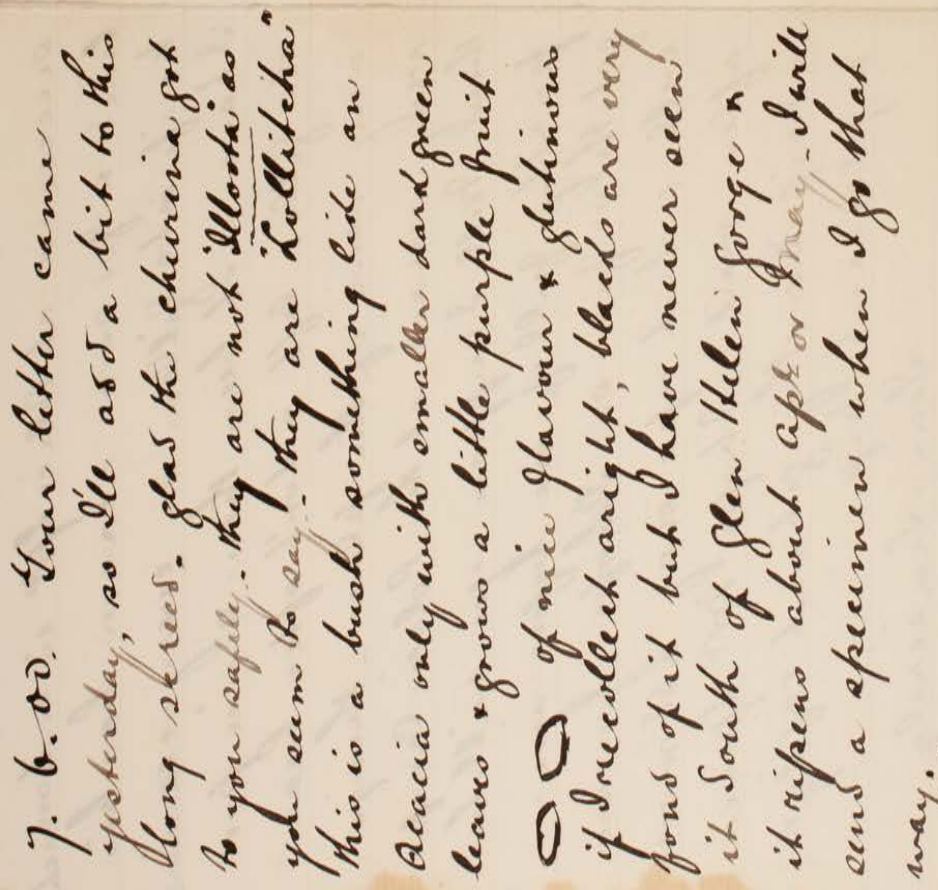 7. 6. 00. Your letter came
yesterday, so I'll add a bit to this
long skreed. glad the churina got
to you safely. they are not "Illoota" as
you seem to say. they are "Lollitcha"
this is a bush something like an
Acacia only with smaller dark green
leaves & grows a little purple fruit
of nice flavour & glutinous
if I recollect aright, blacks are very
fond of it but I have never seen
it South of Glen Helen gorge &
it ripens about Apl or May. I will
send a specimen when I go that
way.